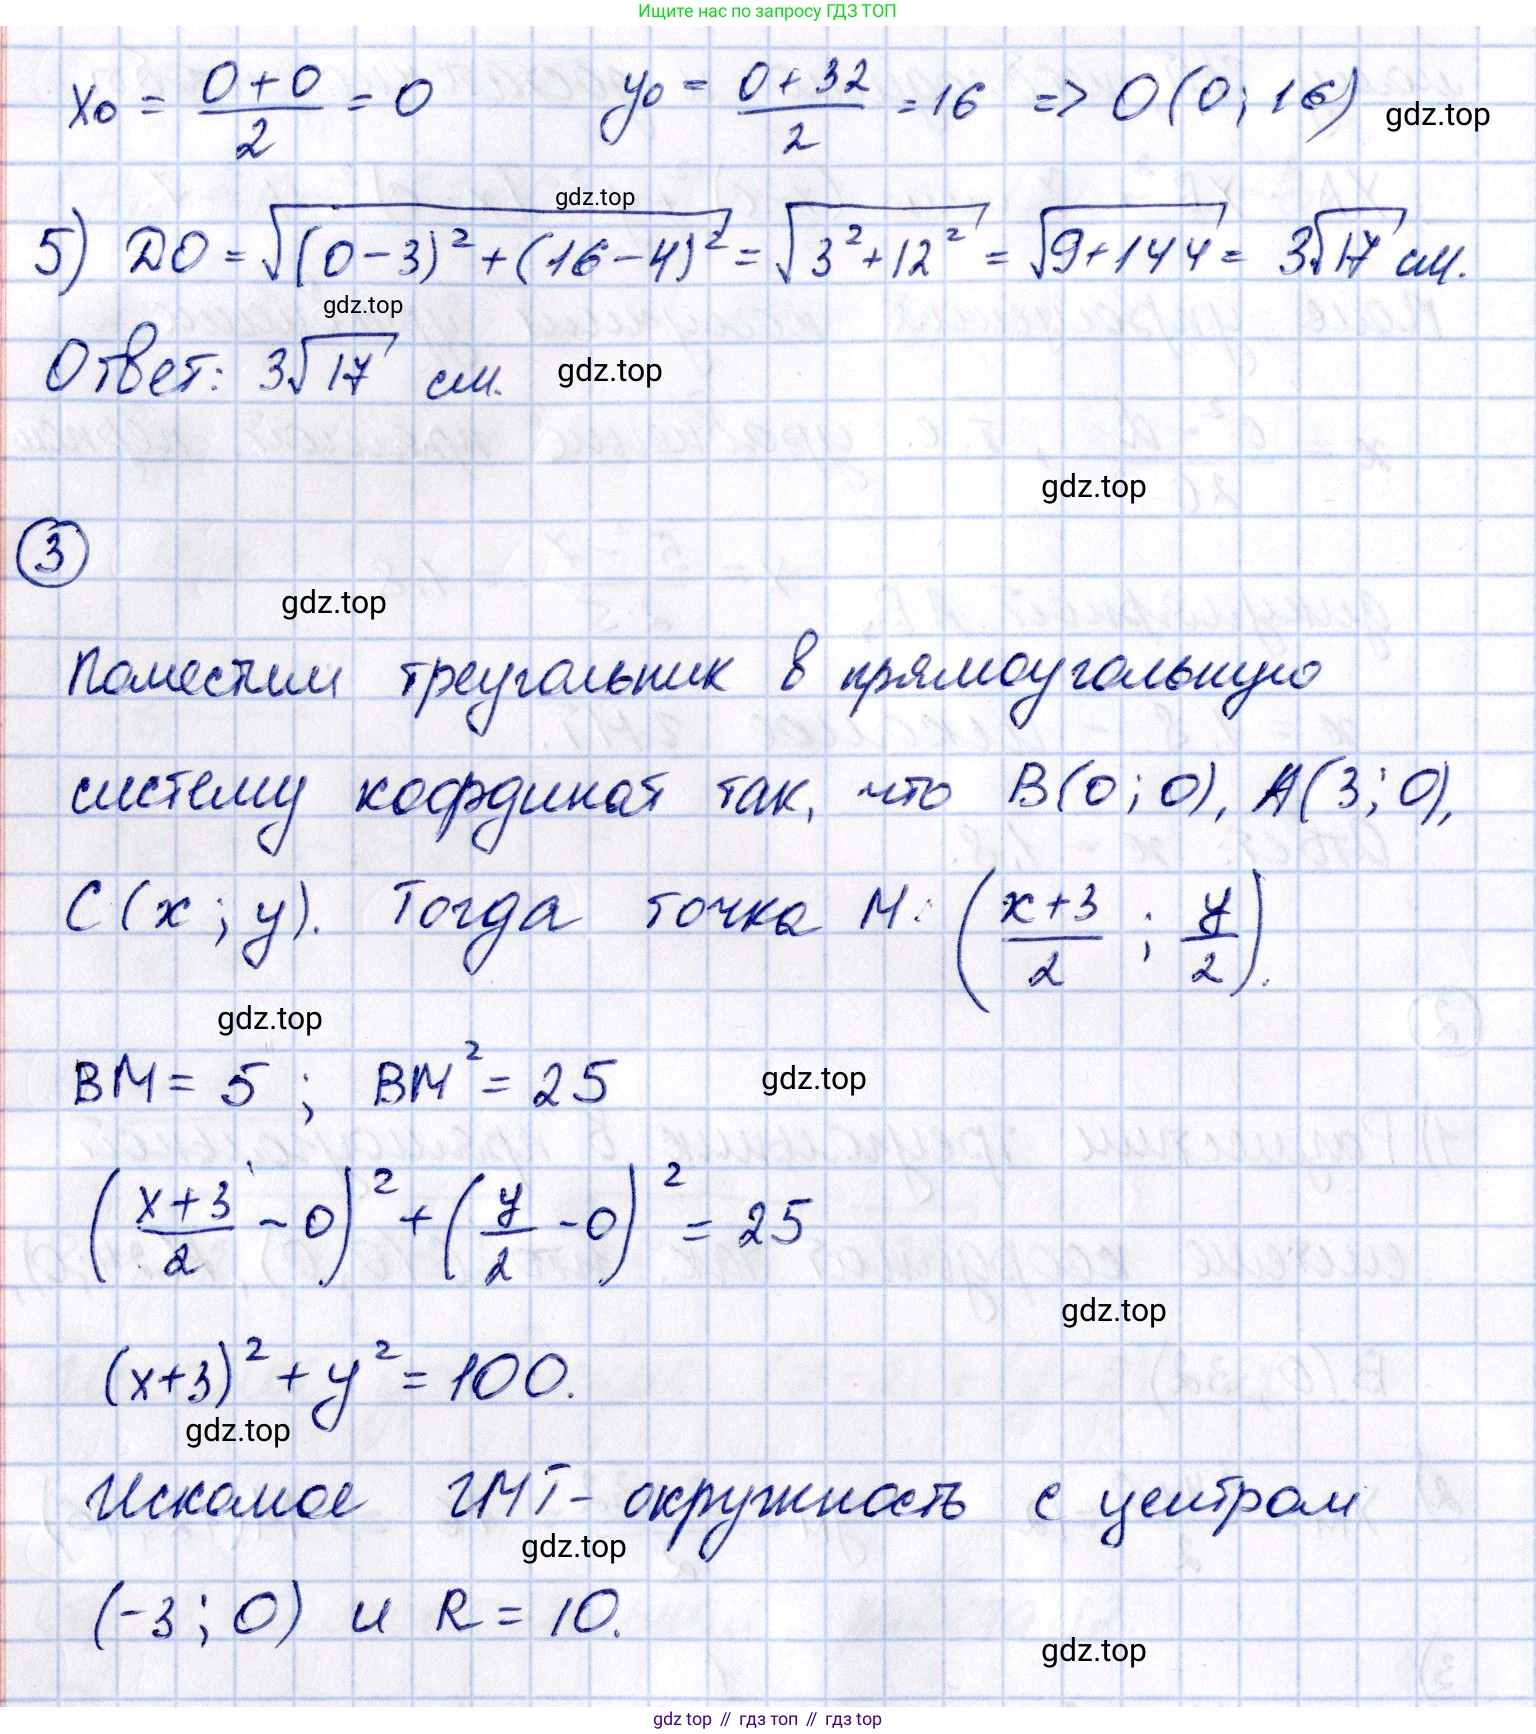 Ищите нас по запросу ГДЗ ТОП
x₀ = (0+0)/2 = 0   y₀ = (0+32)/2 = 16 => O(0; 16)
gdz.top
gdz.top
5) DO = √((0-3)² + (16-4)²) = √(3²+12²) = √(9+144) = 3√17 см.
gdz.top
Ответ: 3√17 см.
gdz.top
gdz.top
3
gdz.top
Поместим треугольник в прямоугольную
систему координат так, что B(0; 0), A(3; 0),
C(x; y). Тогда точка M: ((x+3)/2; y/2).
gdz.top
BM = 5; BM² = 25
gdz.top
((x+3)/2 - 0)² + (y/2 - 0)² = 25
gdz.top
(x+3)² + y² = 100.
gdz.top
Искомое ГМТ- окружность с центром
gdz.top
(-3; 0) и R = 10.
gdz.top
gdz top // гдз топ // гдз top